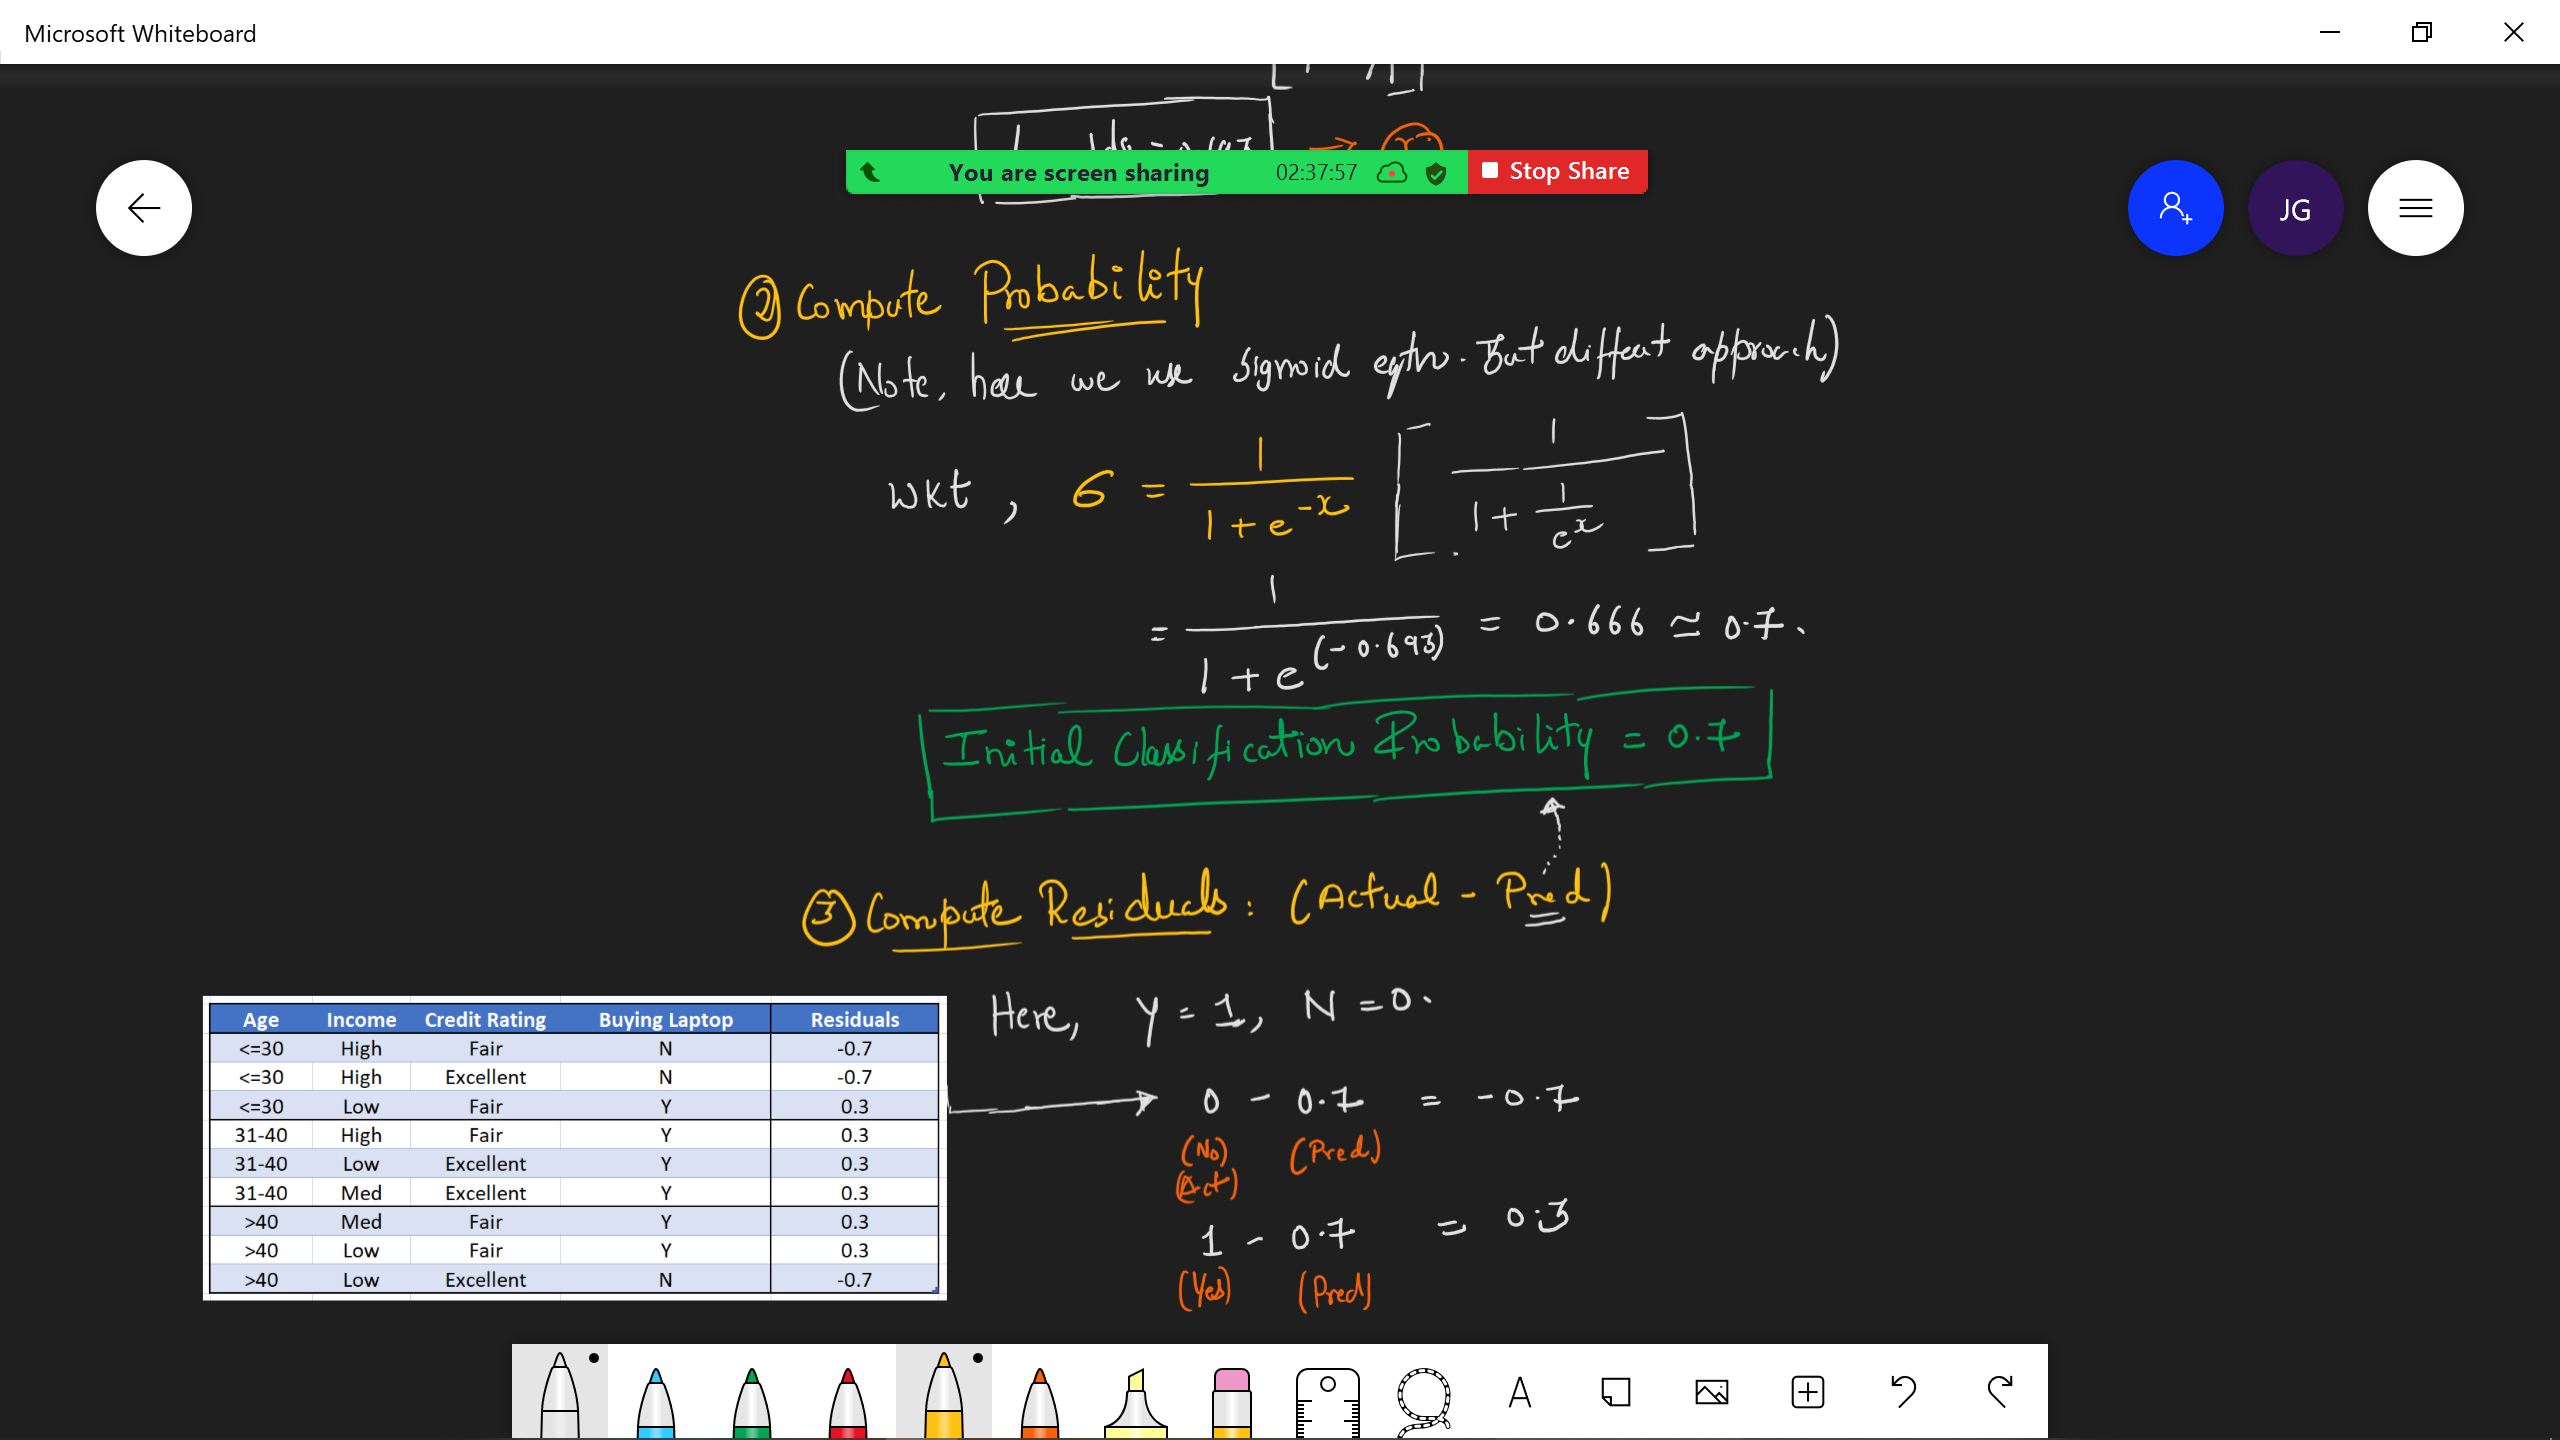 Microsoft Whiteboard
You are screen sharing 02:37:57 Stop Share
JG
② Compute Probability
(Note, here we use Sigmoid eqtn. But diffent approach)
WKT, σ = 1 / (1 + e^-x) [ 1 / (1 + 1/e^x) ]
= 1 / (1 + e^(-0.693)) = 0.666 ≃ 0.7.
Initial Classification Probability = 0.7
③ Compute Residuals: (Actual - Pred)
Here, Y = 1, N = 0.
Age Income Credit Rating Buying Laptop Residuals
<=30 High Fair N -0.7
<=30 High Excellent N -0.7
<=30 Low Fair Y 0.3
31-40 High Fair Y 0.3
31-40 Low Excellent Y 0.3
31-40 Med Excellent Y 0.3
>40 Med Fair Y 0.3
>40 Low Fair Y 0.3
>40 Low Excellent N -0.7
0 - 0.7 = -0.7
(No) (Pred)
(Act)
1 - 0.7 = 0.3
(Yes) (Pred)